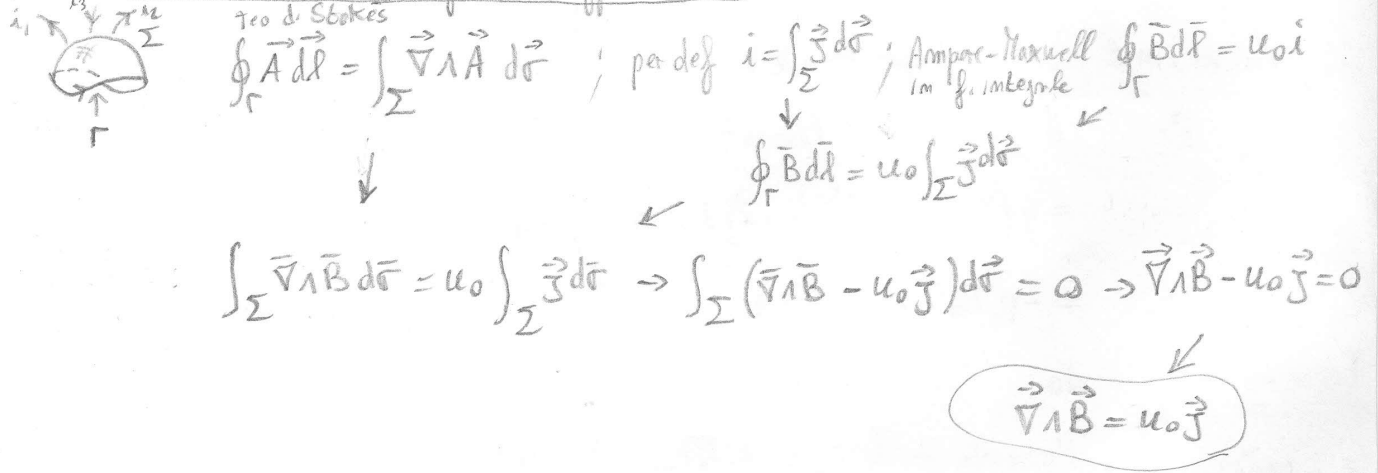 i₁ i₃ i₂ Σ
Teo di Stokes
∮_Γ A⃗ dl⃗ = ∫_Σ ∇⃗ ∧ A⃗ dσ⃗ ; per def i = ∫_Σ J⃗ dσ⃗ ; Ampere-Maxwell in f. integrale ∮_Γ B̄ dl̄ = u₀ i
Γ
↓ ↙
∮_Γ B̄ dl̄ = u₀ ∫_Σ J⃗ dσ⃗
↓ ↙
∫_Σ ∇̄ ∧ B̄ dσ̄ = u₀ ∫_Σ J⃗ dσ̄ → ∫_Σ (∇̄ ∧ B̄ - u₀ J⃗) dσ⃗ = 0 → ∇⃗ ∧ B⃗ - u₀ J⃗ = 0
↙
∇⃗ ∧ B⃗ = u₀ J⃗